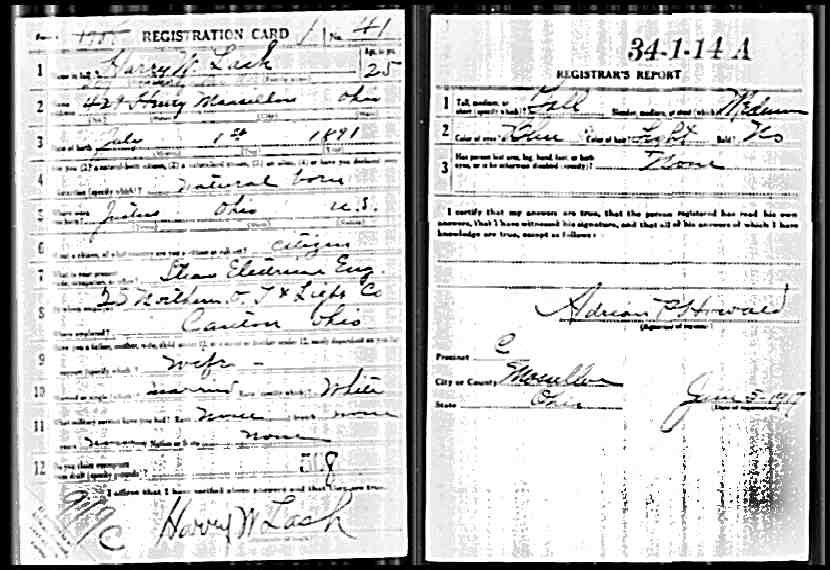 REGISTRATION CARD No. 41
1 Name in full Harry W. Lash Age, in yrs. 25
2 Home address 429 Henry Massillon Ohio
3 Date of birth July 1st 1891
4 Are you (1) a natural-born citizen, (2) a naturalized citizen, (3) an alien, (4) or have you declared your intention (specify which)? Natural born
5 Where were you born? Justus Ohio U.S.
6 If not a citizen, of what country are you a citizen or subject? Citizen
7 What is your present trade, occupation, or office? Eng.
8 By whom employed? Northern O. T & Light Co
Where employed? Canton Ohio
9 Have you a father, mother, wife, child under 12, or a sister or brother under 12, solely dependent on you for support (specify which)? Wife -
10 Married or single (which)? married Race (specify which)? White
11 What military service have you had? Rank None branch none
years Nation or State none
12 Do you claim exemption from draft (specify grounds)?
I affirm that I have verified above answers and that they are true.
Harry W Lash
34-1-14 A
REGISTRAR'S REPORT
1 Tall, medium, or short (specify which)? Tall Slender, medium, or stout (which)? Medium
2 Color of eyes? Blue Color of hair? Light Bald? No
3 Has person lost arm, leg, hand, foot, or both eyes, or is he otherwise disabled (specify)? None
I certify that my answers are true, that the person registered has read his own
answers, that I have witnessed his signature, and that all of his answers of which I have
knowledge are true, except as follows:
Adrian P Howald
(Signature of registrar)
Precinct C
City or County Massillon
State Ohio June 5-1917
(Date of registration)